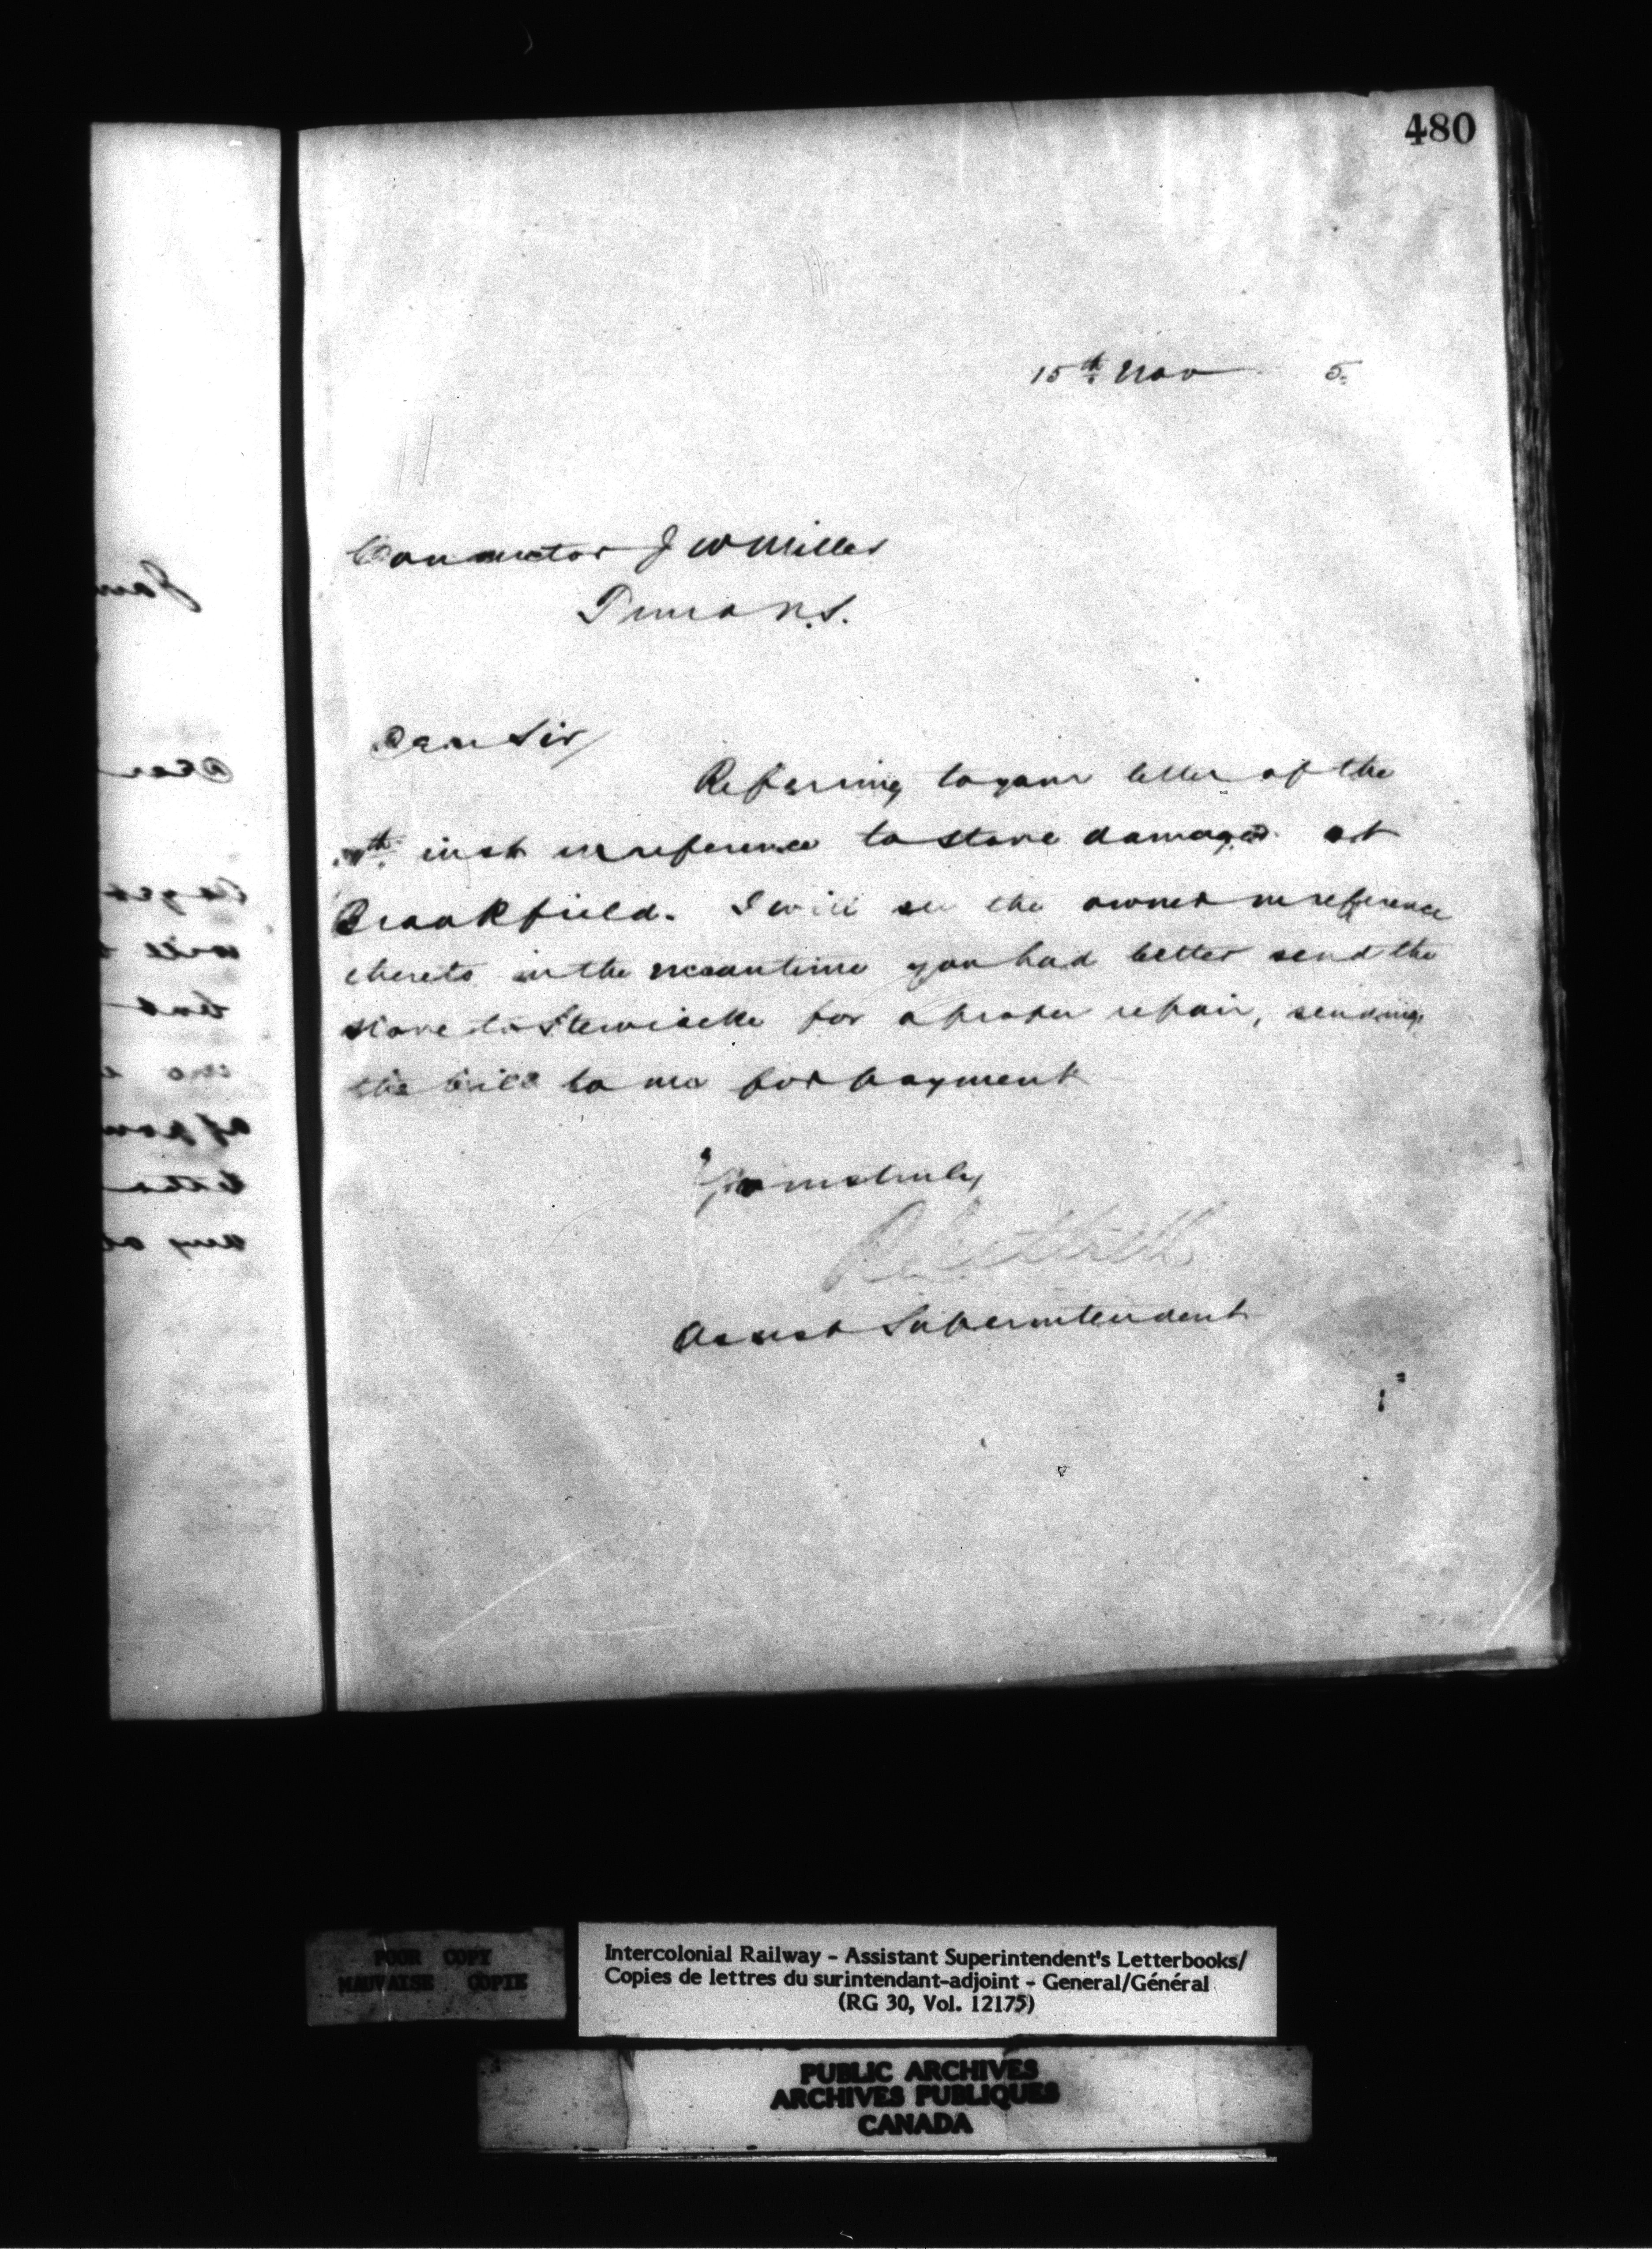 480
15th Nov 5.
Conductor J W Miller
Truro N.S.
Dear Sir/
Referring to your letter of the
th inst in reference to stove damaged at
Brookfield. I will see the owner in reference
thereto in the meantime you had better send the
stove to Stewiacke for a proper repair, sending
the bill to me for payment
Yours truly
Assist Superintendent
POOR COPY
MAUVAISE COPIE
Intercolonial Railway - Assistant Superintendent's Letterbooks/
Copies de lettres du surintendant-adjoint - General/Général
(RG 30, Vol. 12175)
PUBLIC ARCHIVES
ARCHIVES PUBLIQUES
CANADA